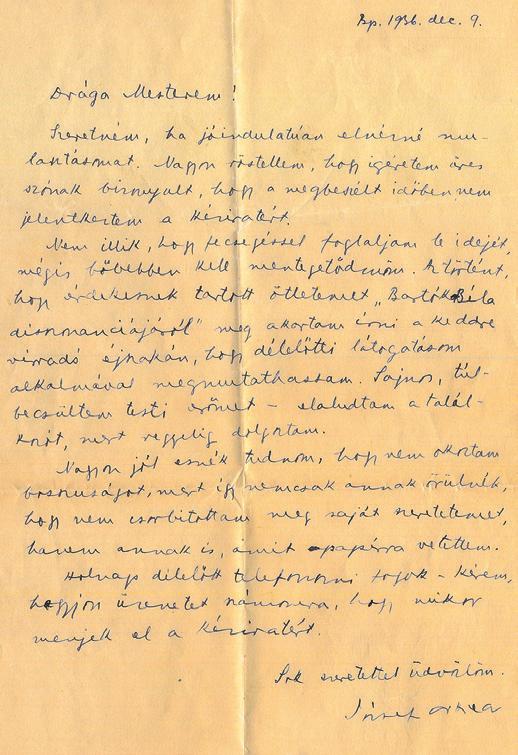 Bp. 1936. dec. 9.
Drága Mesterem!
Szeretném, ha jóindulatúan elnézné mu-
lasztásomat. Nagyon röstellem, hogy igéretem üres
szónak bizonyult, hogy a megbeszélt időben nem
jelentkeztem a kéziratért.
Nem illik, hogy fecsegéssel foglaljam le idejét,
mégis bővebben kell mentegetődznöm. Az történt,
hogy érdekesnek tartott ötletemet „Bartók Béla
disszonanciájáról" meg akartam írni a keddre
virradó éjszakán, hogy délelőtti látogatásom
alkalmával megmutathassam. Sajnos, túl-
becsültem testi erőmet – elaludtam a talál-
kozót, mert reggelig dolgoztam.
Nagyon jól esnék tudnom, hogy nem okoztam
bosszuságot, mert így nemcsak annak örülnék,
hogy nem csorbítottam meg saját szeretetemet,
hanem annak is, amit papírra vetettem.
Holnap délelőtt telefonozni fogok – kérem,
hagyjon üzenetet számomra, hogy mikor
menjek el a kéziratért.
Sok szeretettel üdvözlöm.
József Attila